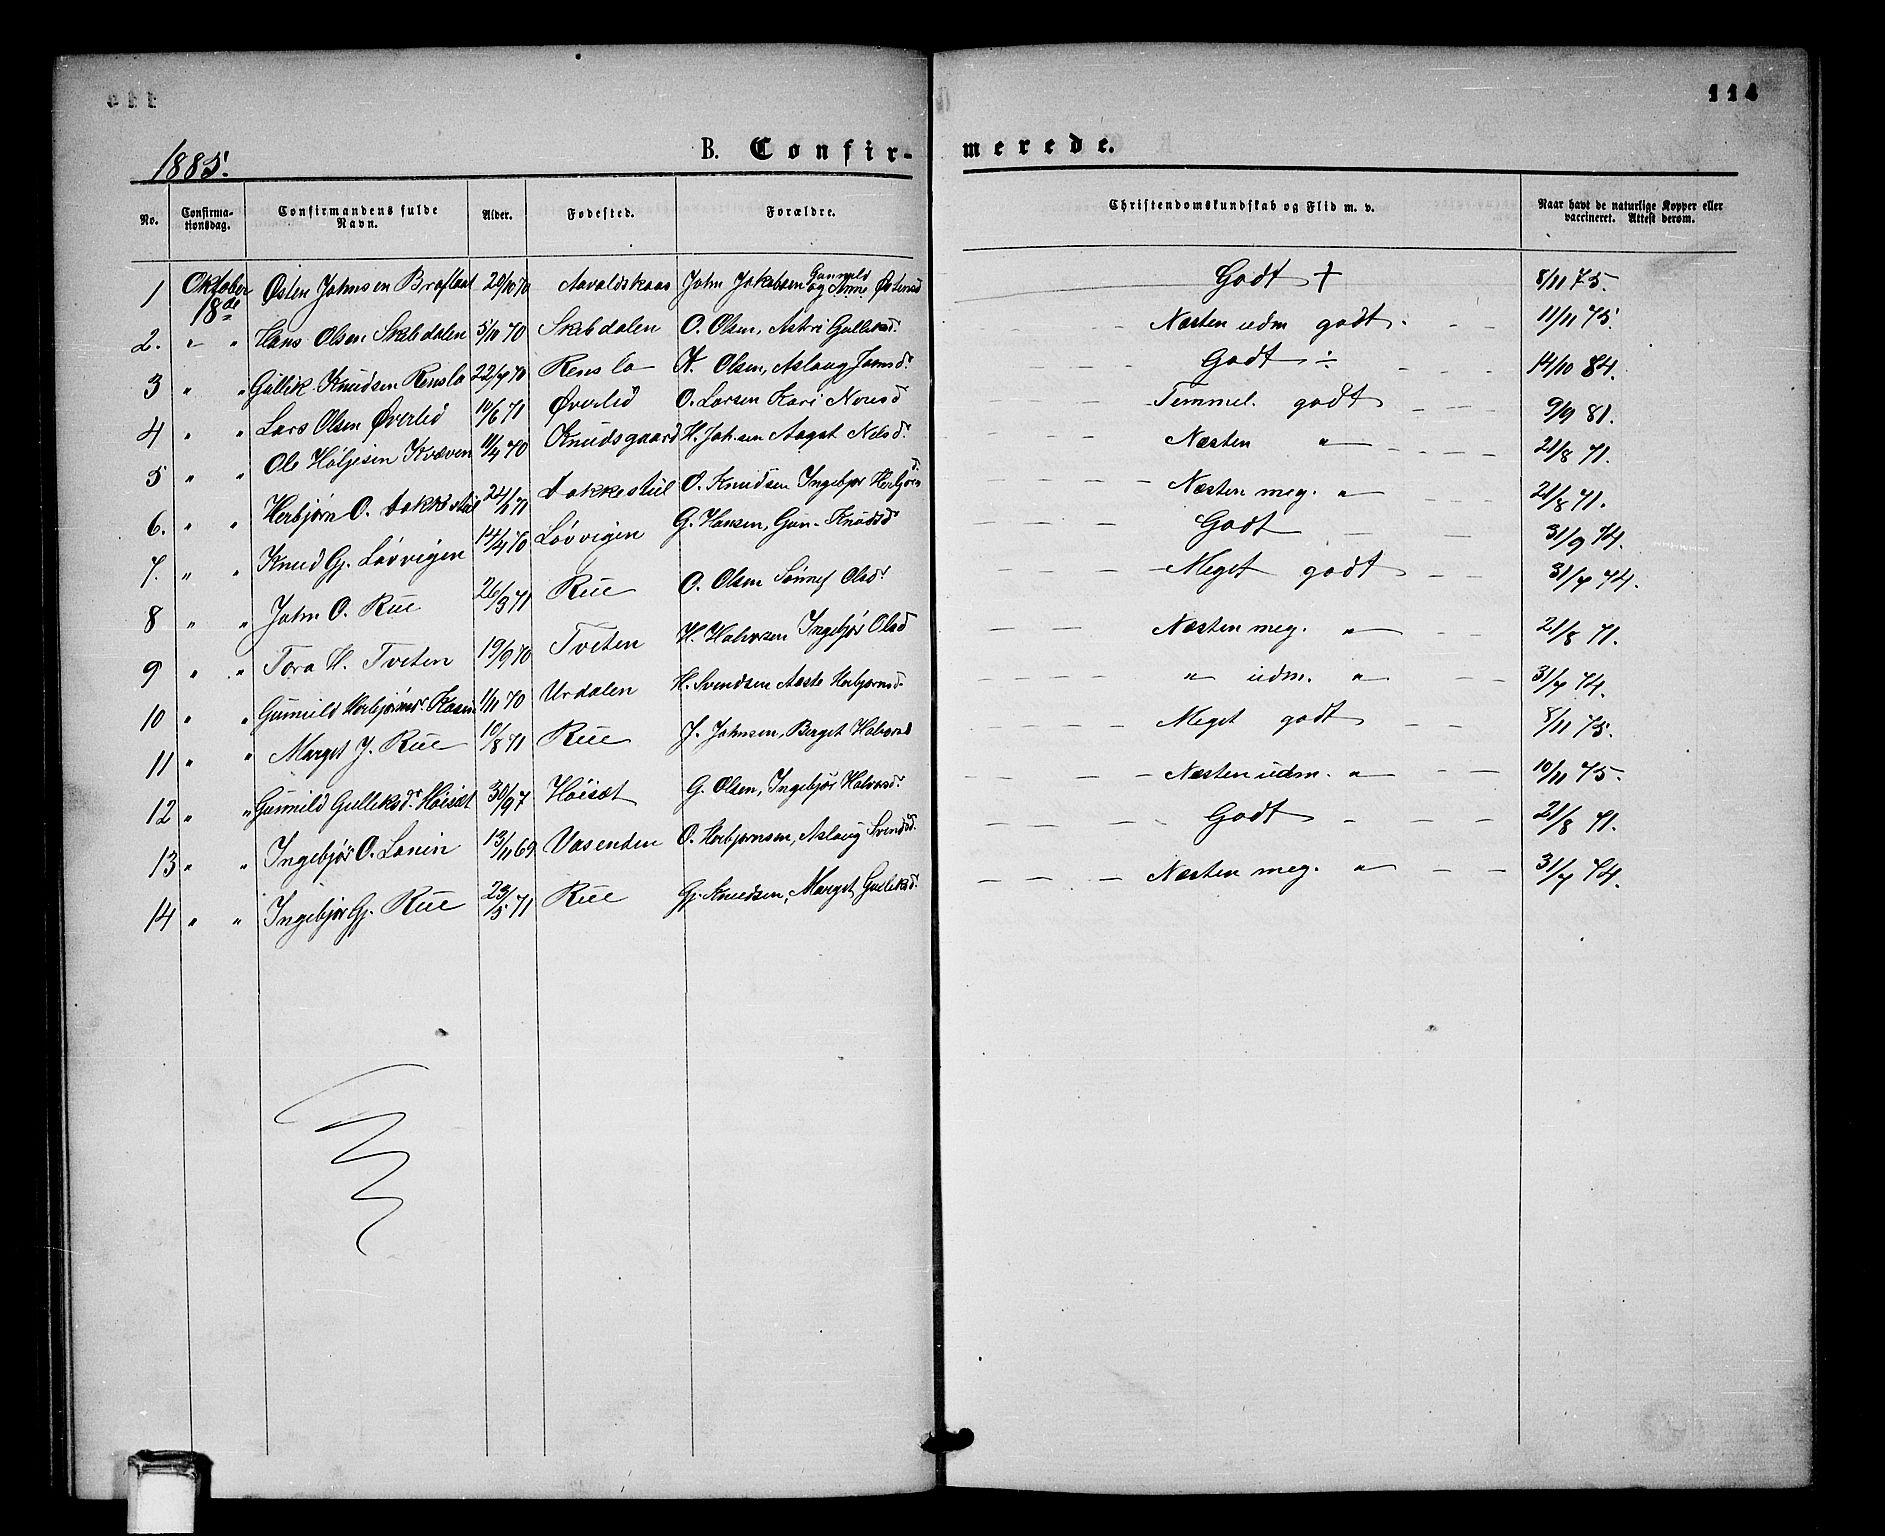 114
1885.
B. Confirmerede.
No. Confirmationsdag. Confirmandens fulde Navn. Alder. Fødested. Forældre. Christendomskundskab og Flid m. v. Naar havt de naturlige Kopper eller vaccineret. Attest derom.
1 Oktober 18de Østen Johnsen Braflaat 20/10 70 Aavaldskaas John Jakobsen og Gunnild Østensd Godt + 8/11 75.
2. " " Hans Olsen Skabdalen 5/10 70 Skabdalen O. Olsen, Astri Gulleksd. Næsten udm godt. 11/11 75.
3 " " Gullik Knudsen Rensla 22/7 70 Rensla K. Olsen, Aslaug Jonsd. Godt ÷ 14/10 84.
4 " " Lars Olsen Øverlid 10/6 71 Øverlid O. Larsen Kari Nensd Temmel. godt 9/9 81.
5 " " Ole Høljesen Kvæven 11/4 70 Knudsgaard H. Johsen Aagot Nelsd. Næsten " 21/8 71.
6. " " Herbjørn O. 24/1 71 O. Knudsen Ingebjør Herbjørnd. Næsten meg. " 21/8 71.
7. " " Knud Gj. Løvvigen 14/4 70 Løvvigen G. Hansen, Gun. Knudsd Godt 31/9 74.
8 " " John O. Rue 26/3 71 Rue O. Olsen Sønnef Olsd. Meget godt 31/7 74.
9 " " Tora H. Tveten 19/9 70 Tveten H. Halvorsen Ingebjør Olsd Næsten meg. " 21/8 71.
10 " " Gunnild Herbjørnsd. Kaasa 1/11 70 Urdalen H. Svendsen Aaste Herbjørnsd. " udm. " 31/7 74.
11 " " Margit J. Rue 10/8 71 Rue J. Johnsen, Berget Halvorsd Meget godt 8/11 75.
12 " " Gunnild Gulleksdr. Høisæt 30/9 7 Høisæt G. Olsen, Ingebjør Halvorsd. Næsten udm. " 10/11 75.
13 " " Ingebjør O. Lonin 13/11 69 Vasenden O. Herbjørnsen, Aslaug Svendsd. Godt 21/8 71.
14 " " Ingebjør Gj. Rue 23/5 71 Rue Gj. Knudsen, Marget Gulleksd. Næsten meg. " 31/7 74.